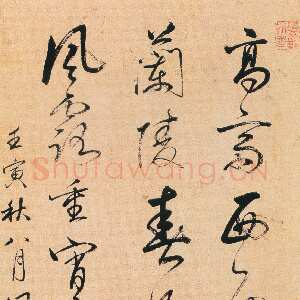 高齋西
蘭陵春
風露重宵
壬寅秋八月
Shufawang.CN